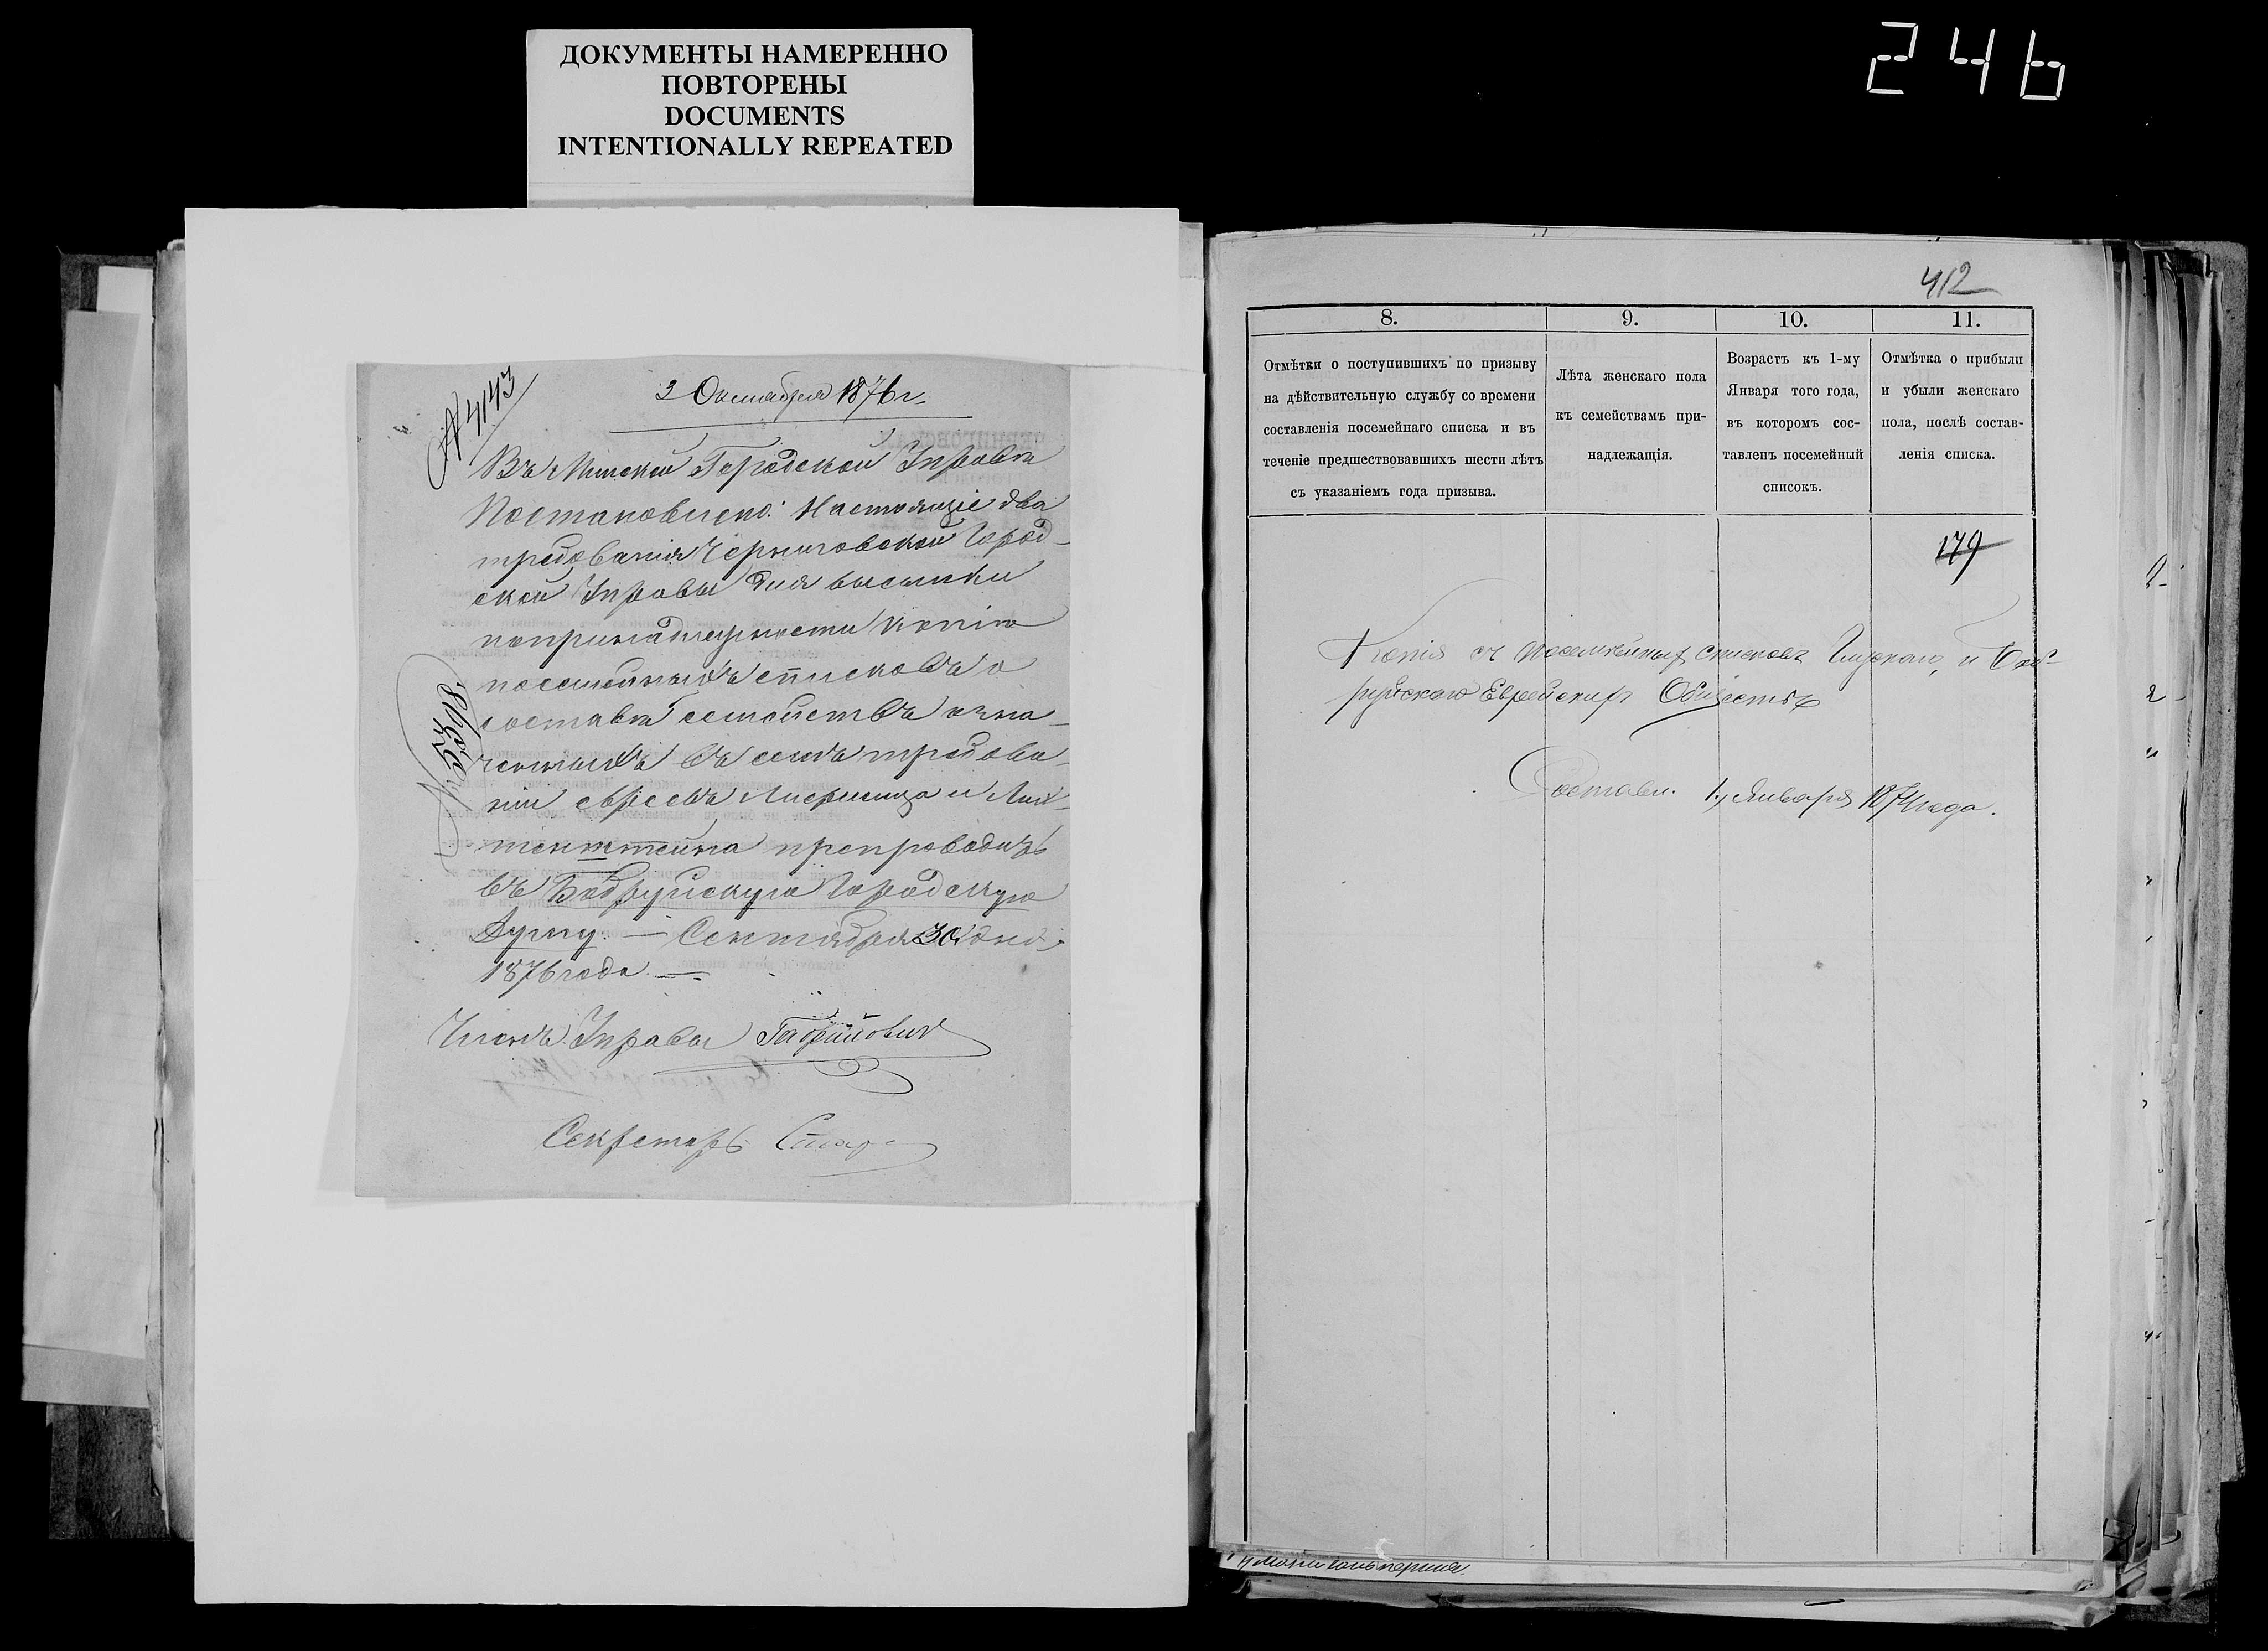 ДОКУМЕНТЫ НАМЕРЕННО
ПОВТОРЕНЫ
DOCUMENTS
INTENTIONALLY REPEATED
246
№ 4143
3 Октября 1876 г.
Въ Минской Городской Управѣ
Постановлено: Настоящіе два
требованія Черниговской Город-
ской Управы для высылки
по принадлежности копіи
посемейныхъ списковъ о
составѣ семействъ озна-
ченныхъ въ семъ требова-
ніи евреевъ и Лих-
тенштейна препроводить
въ Бобруйскую Городскую
Думу. — Сентября 30 дня
1876 года. —
Членъ Управы
Секретарь
412
8.
9.
10.
11.
Отмѣтки о поступившихъ по призыву
на дѣйствительную службу со времени
составленія посемейнаго списка и въ
теченіе предшествовавшихъ шести лѣтъ
съ указаніемъ года призыва.
Лѣта женскаго пола
къ семействамъ при-
надлежащія.
Возрастъ къ 1-му
Января того года,
въ которомъ сос-
тавленъ посемейный
списокъ.
Отмѣтка о прибыли
и убыли женскаго
пола, послѣ состав-
ленія списка.
179
Копія съ посемейныхъ списковъ Глускаго и Боб-
руйскаго Еврейскихъ Обществъ
Составл. 1 Января 1874 года.